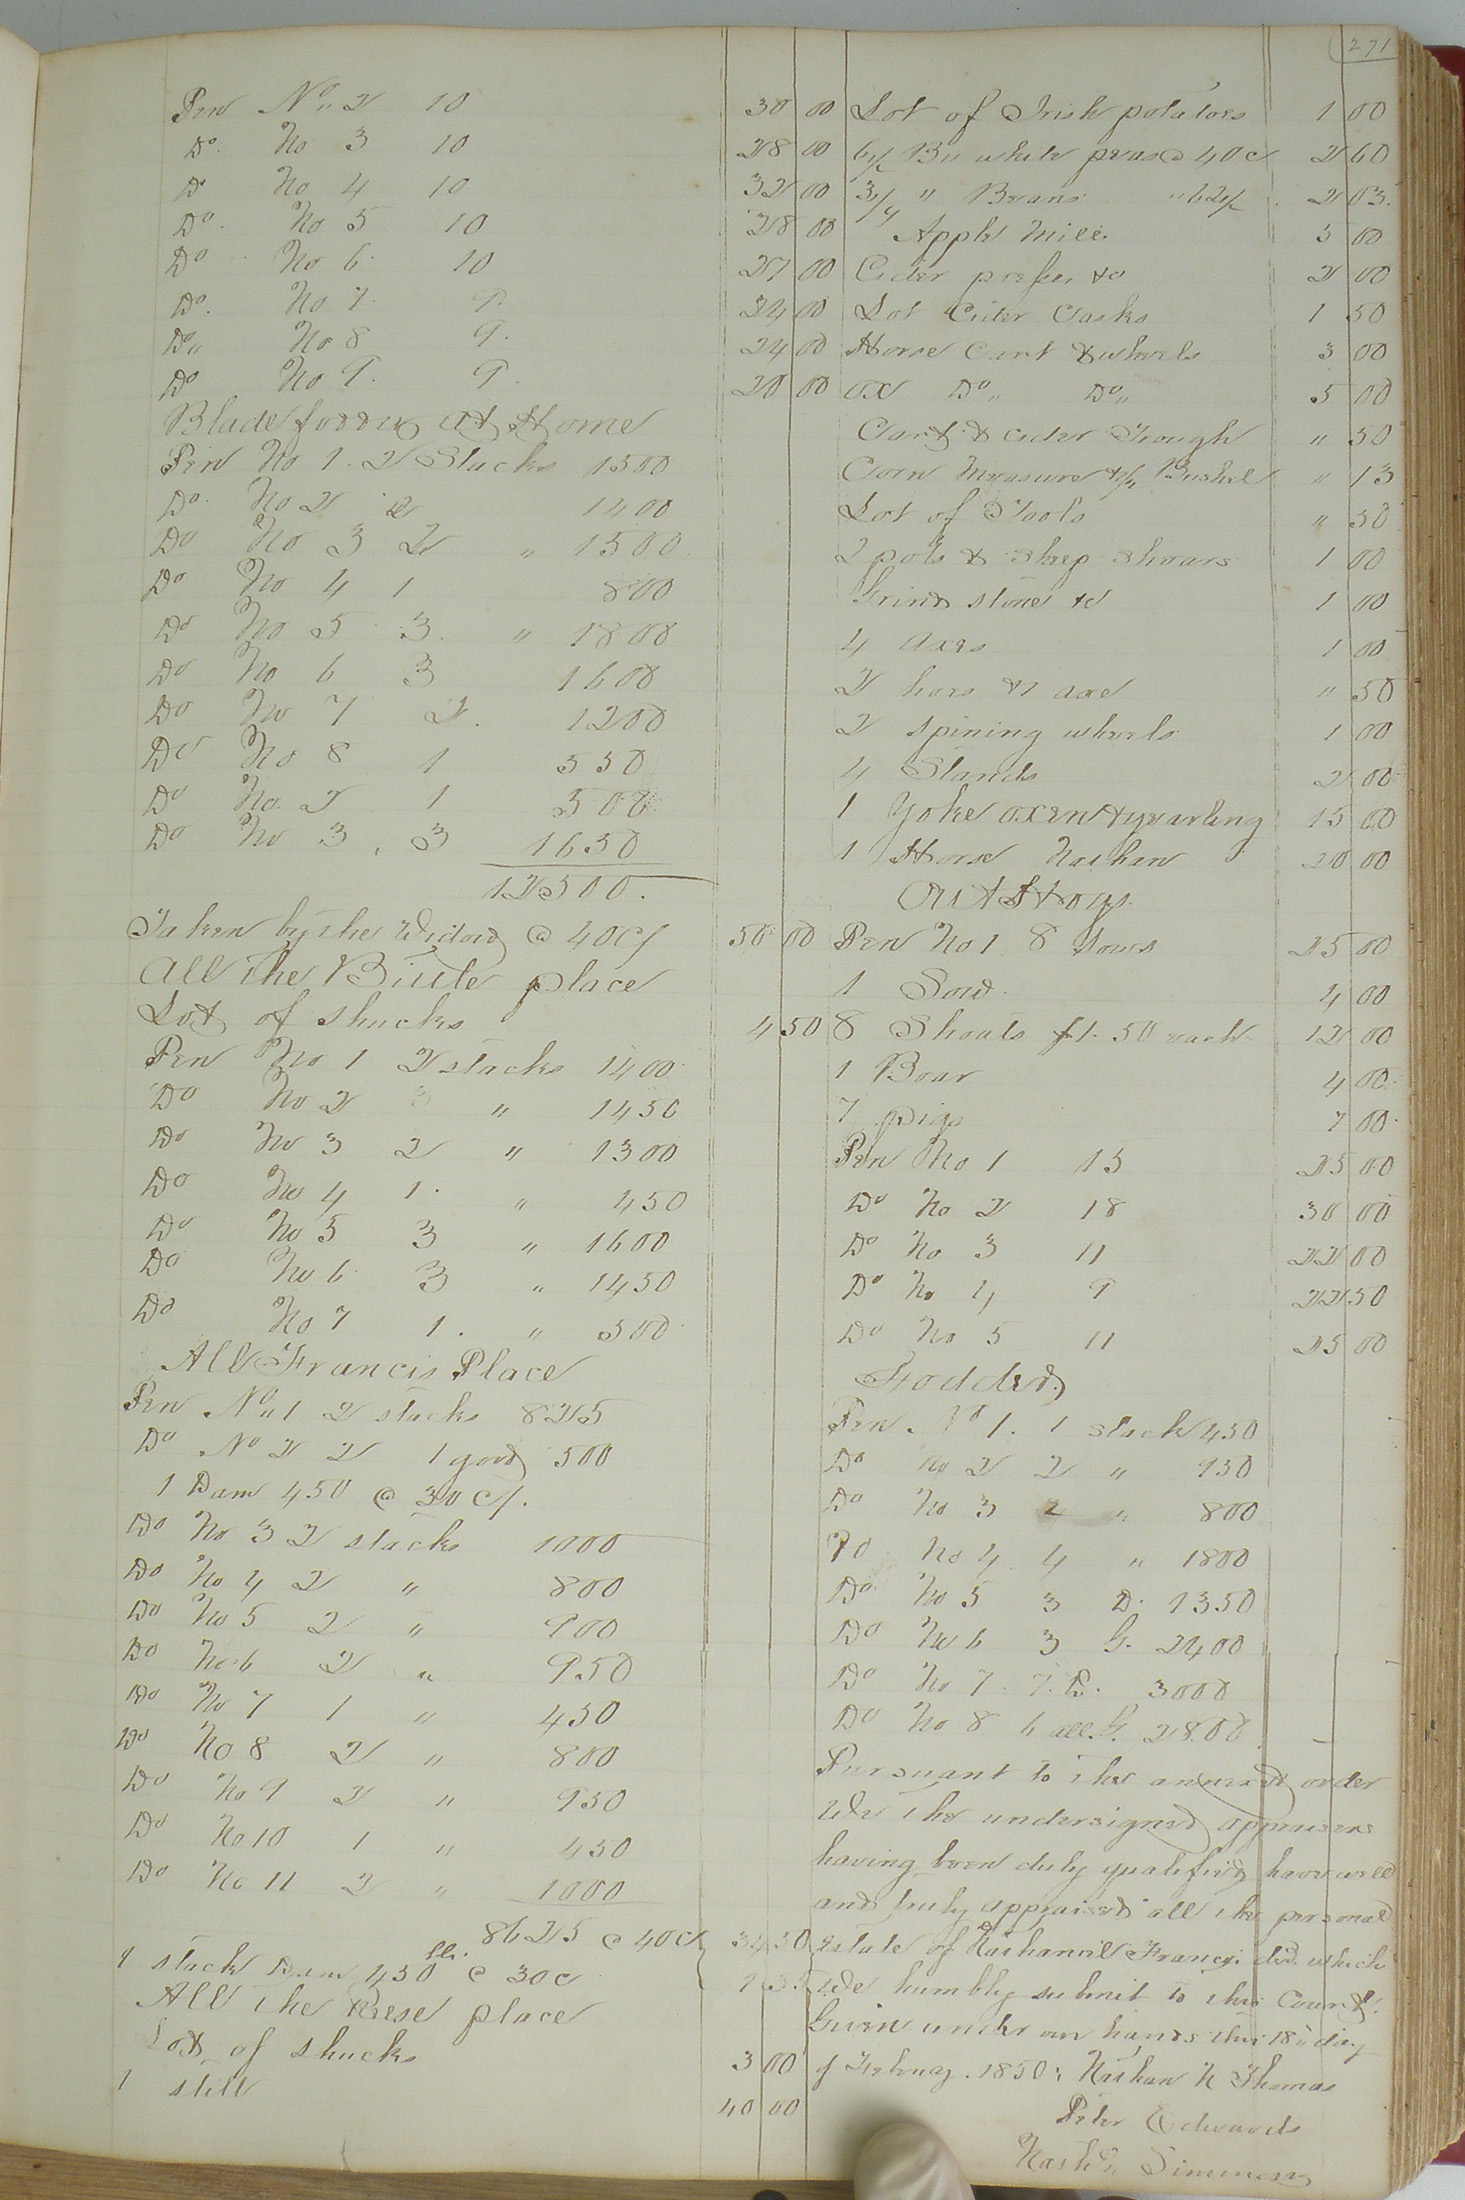 271
Pen No. 2 10 30 00
Do. No 3 10 28 00
Do No 4 10 32 00
Do. No 5 10 28 00
Do No 6 10 27 00
Do. No. 7 9. 24 00
Do,, No 8 9. 24 00
Do No 9. 9. 20 00
Blade fodder at Home
Pen No 1. 2 Stacks 1500
Do. No 2 2 1400
Do No 3 2 " 1500
Do No 4 1 800
Do No 5 3. " 1800
Do No 6 3 1600
Do No 7 2. 1200
Do No 8 1 550
Do No. 2 1 500
Do No 3, 3 1650
12500.
Taken by the Widow @ 40c/ 50 00
All the place
Lot of shucks 4 50
Pen No 1 2 stacks 1400
Do No 2 3 " 1450
Do No 3 2 " 1300
Do No 4 1. " 450
Do No 5 3 " 1600
Do No 6 3 " 1450
Do No 7 1. " 500
All Francis Place
Pen No,, 1 2 stacks 825
Do No 2 2 1 good 500
1 Dam 450 @ 30 c/.
Do No 3 2 stacks 1000
Do No 4 2 " 800
Do No 5 2 " 900
Do No 6 2 " 950
Do No 7 1 " 450
Do No 8 2 " 800
Do No 9 2 " 950
Do No 10 1 " 450
Do No 11 2 " 1000
8625 @ 40c/ 34 50
1 stack Dam 450 lb. @ 30c 1 35
All the Reese place
Lot of shucks 3 00
1 still 40 00
Lot of Irish potatoes 1 00
6 1/2 Bu white peas @ 40c 2 60
3 1/4 " Beans " 62 1/2 2 03
Apple Mill 5 00
Cider press &c 2 00
Lot Cider Casks 1 50
Horse Cart & wheels 3 00
ox Do,, Do,, 5 00
Cart & cider Trough " 50
Corn Measure & 1/2 Bushel " 13
Lot of Tools " 50
2 pots & sheep shears 1 00
Grind stone &c 1 00
4 axes 1 00
2 hoes & 1 axe " 50
2 spining wheels 1 00
4 Stands 2 00
1 Yoke oxen & yearling 15 00
1 Horse Nathan 20 00
Out Hogs.
Pen No 1 8 Sows 25 00
1 Sow. 4 00
8 Shoats $1.50 each 12 00
1 Boar 4 00
7 pigs 7 00
Pen No 1 15 25 00
Do No 2 18 30 00
Do No 3 11 22 00
Do No 4 9 22 50
Do No 5 11 25 00
Fodder.
Pen No 1. 1 stack 450
Do No 2 2 " 950
Do No 3 2 " 800
Do No 4 4 " 1800
Do No 5 3 D. 1350
Do No 6 3 G. 2400
Do No 7. 7. D. 3000
Do No 8 6 all. G. 2800
Pursuant to the annexed order
We the undersigned appraisers
having been duly qualified have well
and truly appraised all the personal
Estate of Nathaniel Francis decd. which
We humbly submit to this Court.
Given under our hands this 18" day
of February. 1850: Nathan N Thomas
Peter Edwards
Nathl,, Simmons